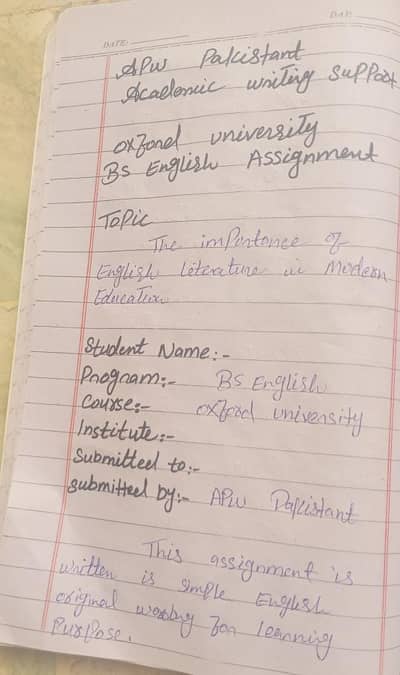 DATE:
DATE:
APW Pakistant
Academic writing support
oxford university
BS English Assignment
Topic
The importance of
English literature in Modern
Education
Student Name:-
Program:- BS English
Course:- oxford university
Institute:-
Submitted to:-
submitted by:- APW Pakistant
This assignment is
written is simple English
original working for learning
Purpose.